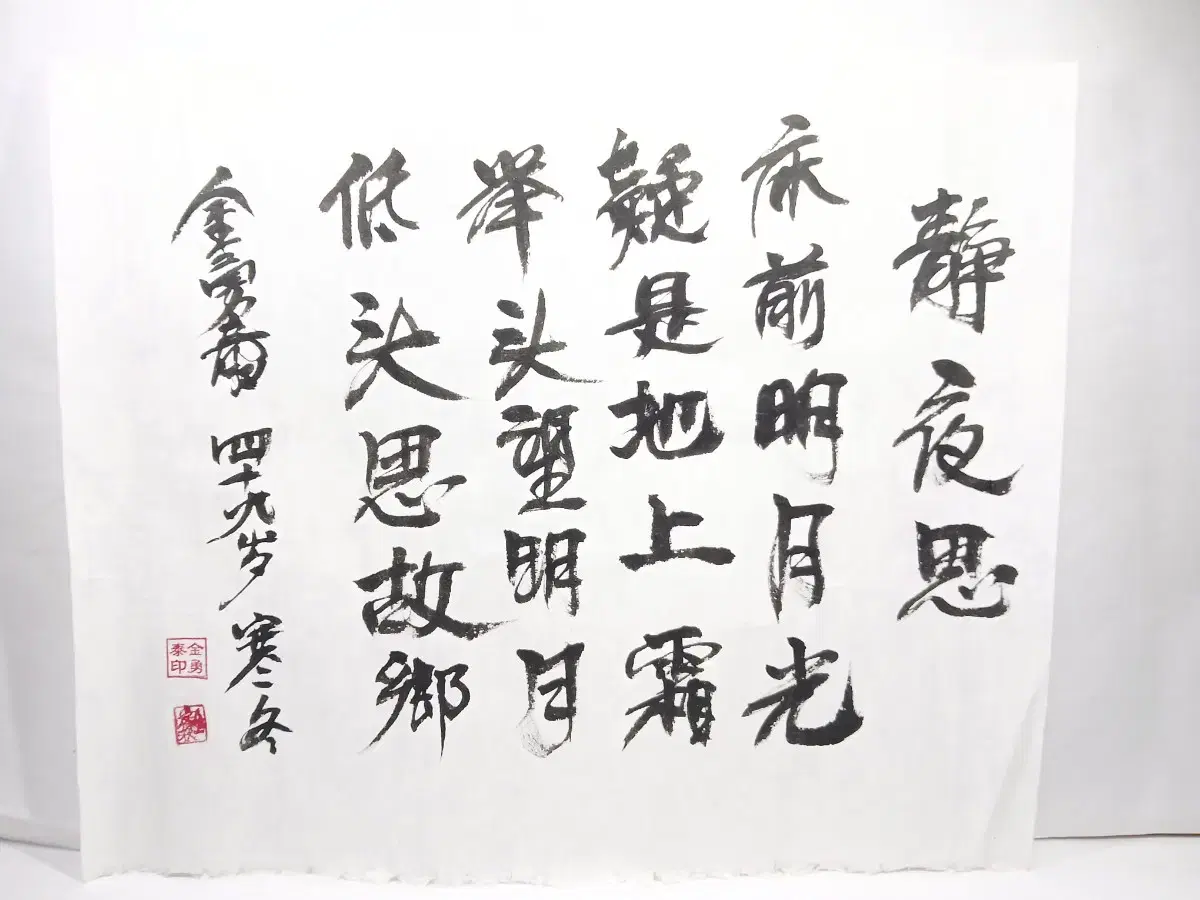 静夜思
床前明月光
疑是地上霜
举头望明月
低头思故鄉
金 四十九岁 寒冬
金勇泰印